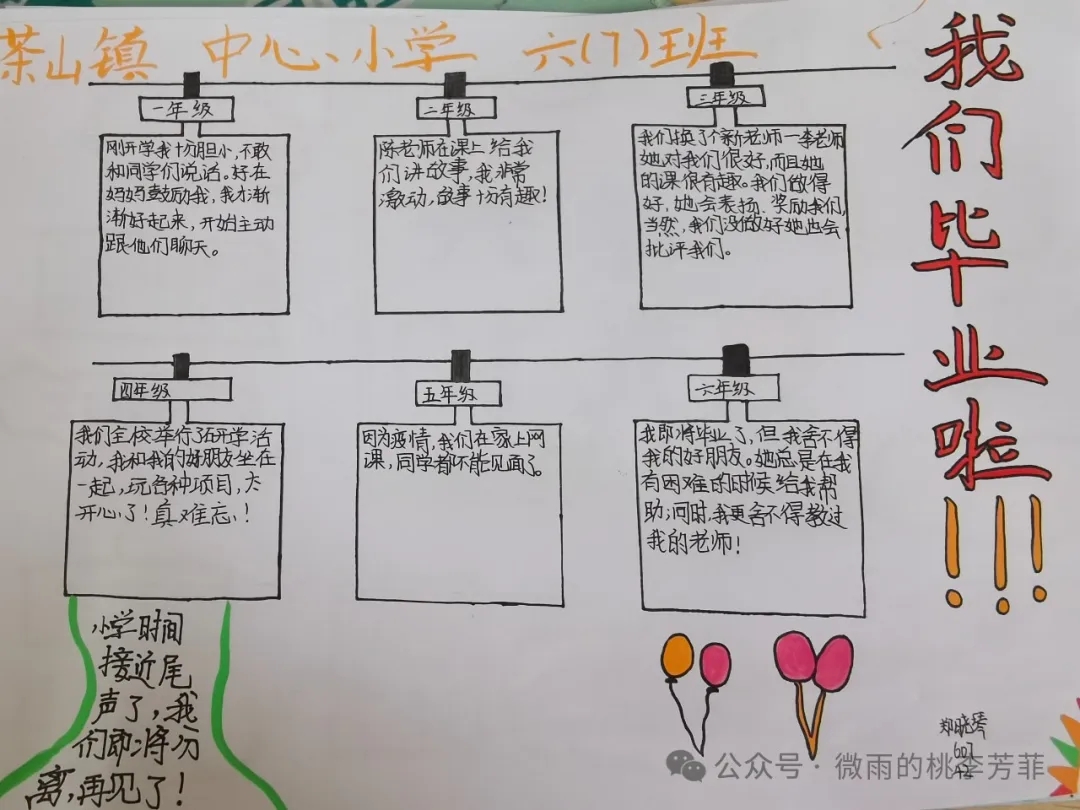 茶山镇 中心小学 六(7)班
我们毕业啦!!!
一年级
刚开学我十分胆小,不敢
和同学们说话。好在
妈妈鼓励我,我才渐
渐好起来,开始主动
跟他们聊天。
二年级
陈老师在课上给我
们讲故事,我非常
激动,故事十分有趣!
三年级
我们换了个新老师—李老师
她对我们很好,而且她
的课很有趣。我们做得
好,她会表扬、奖励我们,
当然,我们没做好她也会
批评我们。
四年级
我们全校举行了研学活
动,我和我的好朋友坐在
一起,玩各种项目,太
开心了!真难忘!
五年级
因为疫情,我们在家上网
课,同学都不能见面了。
六年级
我即将毕业了,但我舍不得
我的好朋友。她总是在我
有困难的时候给我帮
助;同时,我更舍不得教过
我的老师!
小学时间
接近尾
声了,我
们即将分
离,再见了!
607
42
公众号·微雨的桃李芳菲